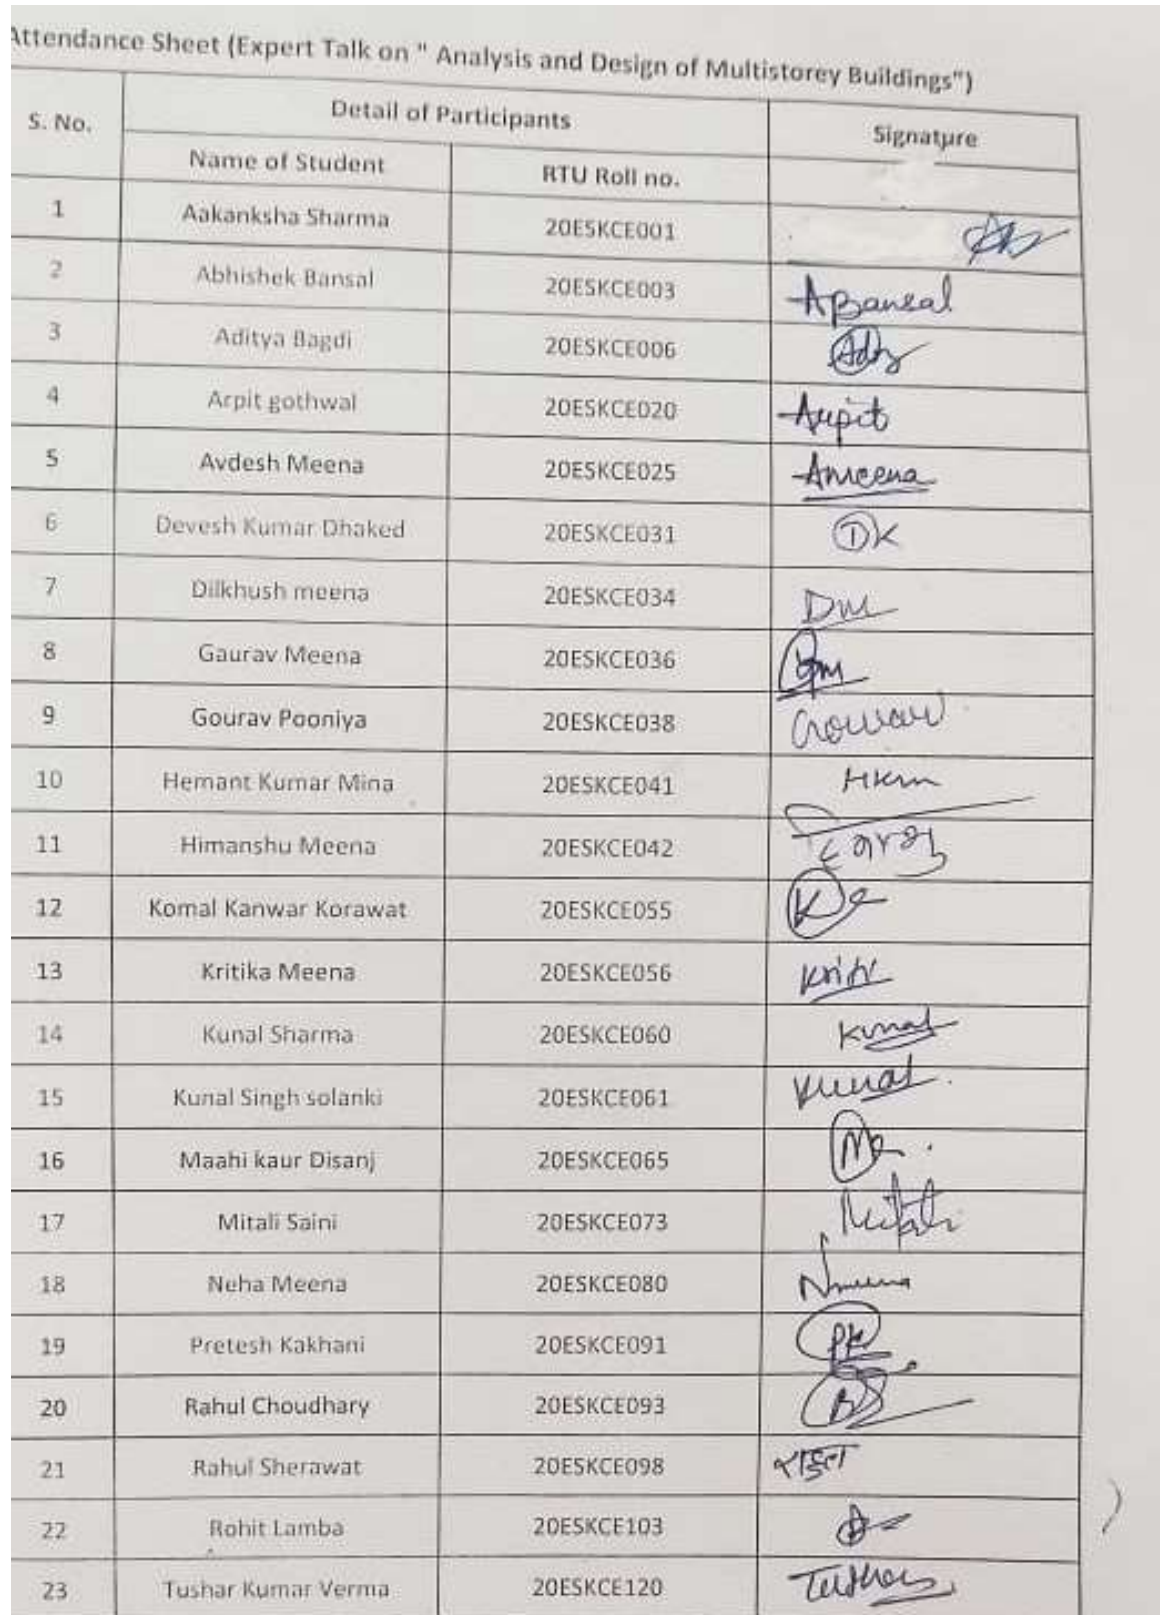 Attendance Sheet (Expert Talk on " Analysis and Design of Multistorey Buildings")
S. No. Detail of Participants Signature
Name of Student RTU Roll no.
1 Aakanksha Sharma 20ESKCE001
2 Abhishek Bansal 20ESKCE003 ABansal
3 Aditya Bagdi 20ESKCE006
4 Arpit gothwal 20ESKCE020 Arpit
5 Avdesh Meena 20ESKCE025 Ameena
6 Devesh Kumar Dhaked 20ESKCE031 DK
7 Dilkhush meena 20ESKCE034 Dm
8 Gaurav Meena 20ESKCE036
9 Gourav Pooniya 20ESKCE038 Gourav
10 Hemant Kumar Mina 20ESKCE041 HKm
11 Himanshu Meena 20ESKCE042
12 Komal Kanwar Korawat 20ESKCE055
13 Kritika Meena 20ESKCE056
14 Kunal Sharma 20ESKCE060 Kunal
15 Kunal Singh solanki 20ESKCE061 Kunal
16 Maahi kaur Disanj 20ESKCE065
17 Mitali Saini 20ESKCE073 Mitali
18 Neha Meena 20ESKCE080 Nmeena
19 Pretesh Kakhani 20ESKCE091 PK
20 Rahul Choudhary 20ESKCE093
21 Rahul Sherawat 20ESKCE098 राहुल
22 Rohit Lamba 20ESKCE103
23 Tushar Kumar Verma 20ESKCE120 Tushar